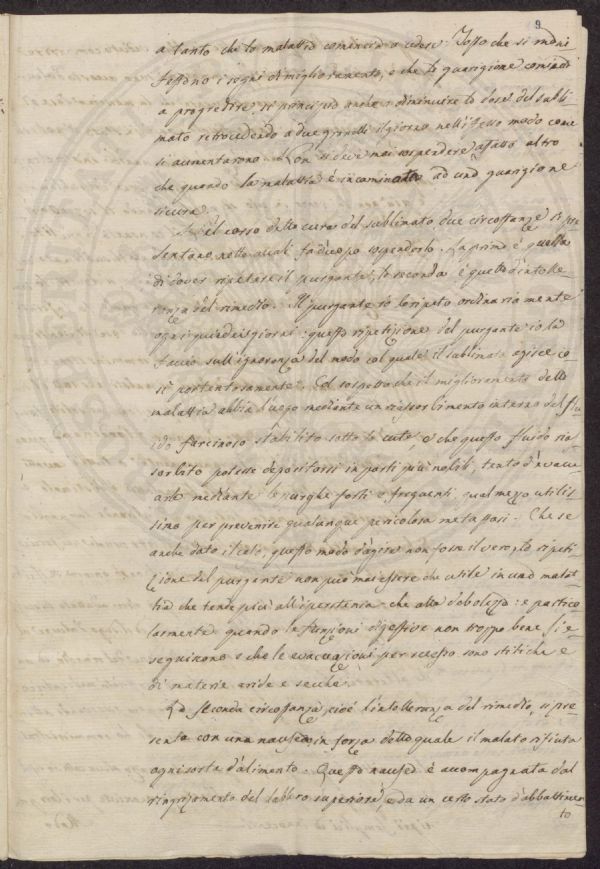 9
a tanto che la malattia comincia a cedere. Tosto che si mani
festano i segni di miglioramento, e che la guarigione cominci
a progredire, si principia anche a diminuire la dose del subli
mato retrocedendo a due granelli il giorno nell'istesso modo come
si aumentarono. Non si deve mai sospendere affatto altro
che quando la malattia è incaminata ad una guarigione
sicura.
Nel corso della cura del sublimato due circostanze si pre
sentano nelle quali fa d'uopo sospenderlo. La prima è quella
di dover ripetere il purgante, la seconda è quella d'intolle
ranza del rimedio. Il purgante io lo ripeto ordinariamente
ogni quindici giorni: questa ripetizione del purgante io la
faccio sull'ignoranza del modo col quale il sublimato agisce co
sì portentosamente. Col sospetto che il miglioramento della
malattia abbia luogo mediante un riassorbimento interno del flu
ido farcinoso stabilito sotto la cute, e che questo fluido rias
sorbito potesse depositarsi in parti più nobili, tento d'evacu
arlo mediante le purghe forti e frequenti qual mezzo utilis
simo per prevenire qualunque pericolosa metastasi. Che se
anche dato il caso, questo modo d'agire non fosse il vero, la ripeti
zione del purgante non può mai essere che utile in una malat
tia che tende più all'iperstenia che alla debolezza: e partico
larmente quando le funzioni digestive non troppo bene si e
seguiscono e che le evacuazioni per secesso sono stitiche e
di materie aride e secche.
La seconda circostanza, cioè l'intolleranza del rimedio, si pre
senta con una nausea, in forza della quale il malato rifiuta
ogni sorta d'alimento. Questa nausea è accompagnata dal
ringrizamento del labbro superiore, e da un certo stato d'abbattimen
to